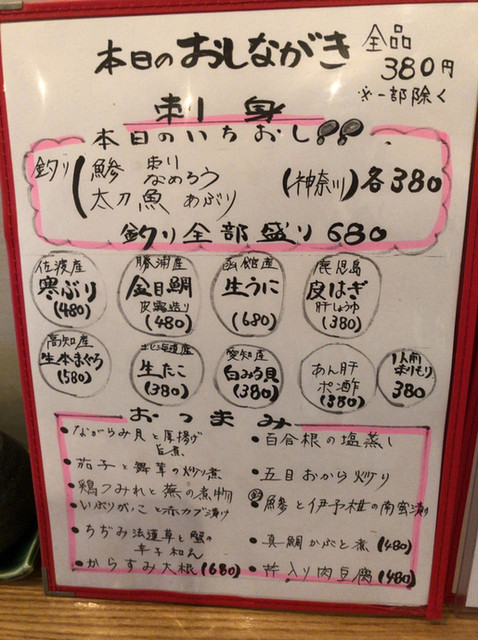 本日のおしながき
全品
380円
※一部除く
刺身
本日のいちおし!!
釣り
鯵 刺り
なめろう
太刀魚 あぶり
(神奈川) 各380
釣り全部盛り 680
佐渡産
寒ぶり
(480)
勝浦産
金目鯛
皮霜造り
(480)
函館産
生うに
(680)
鹿児島
皮はぎ
肝しょうゆ
(380)
高知産
生本まぐろ
(580)
北海道産
生たこ
(380)
愛知産
白みる貝
(380)
あん肝
ポン酢
(380)
1人前
盛りもり
380
おつまみ
・ながらみ貝と厚揚げ
旨煮
・茄子と舞茸の炒り煮
・鶏つみれと蕪の煮物
・いぶりがっこと赤カブ漬け
・ちぢみ法蓮草と蟹の
辛子和え
・からすみ大根(680)
・百合根の塩蒸し
・五目おから炒り
鯵と伊予柑の南蛮漬け
・真鯛かぶと煮(480)
・芹入り肉豆腐(480)